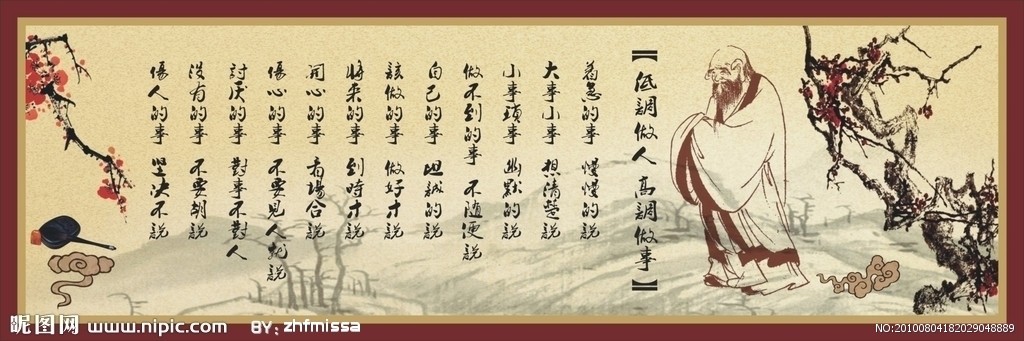 【低調做人 高調做事】
着急的事 慢慢的說
大事小事 想清楚說
小事瑣事 幽默的說
做不到的事 不隨便說
自己的事 坦誠的說
該做的事 做好才說
將來的事 到時才說
開心的事 看場合說
傷心的事 不要見人就說
討厭的事 對事不對人
沒有的事 不要胡說
傷人的事 堅決不說
昵图网 www.nipic.com BY: zhfmissa
NO:20100804182029048889